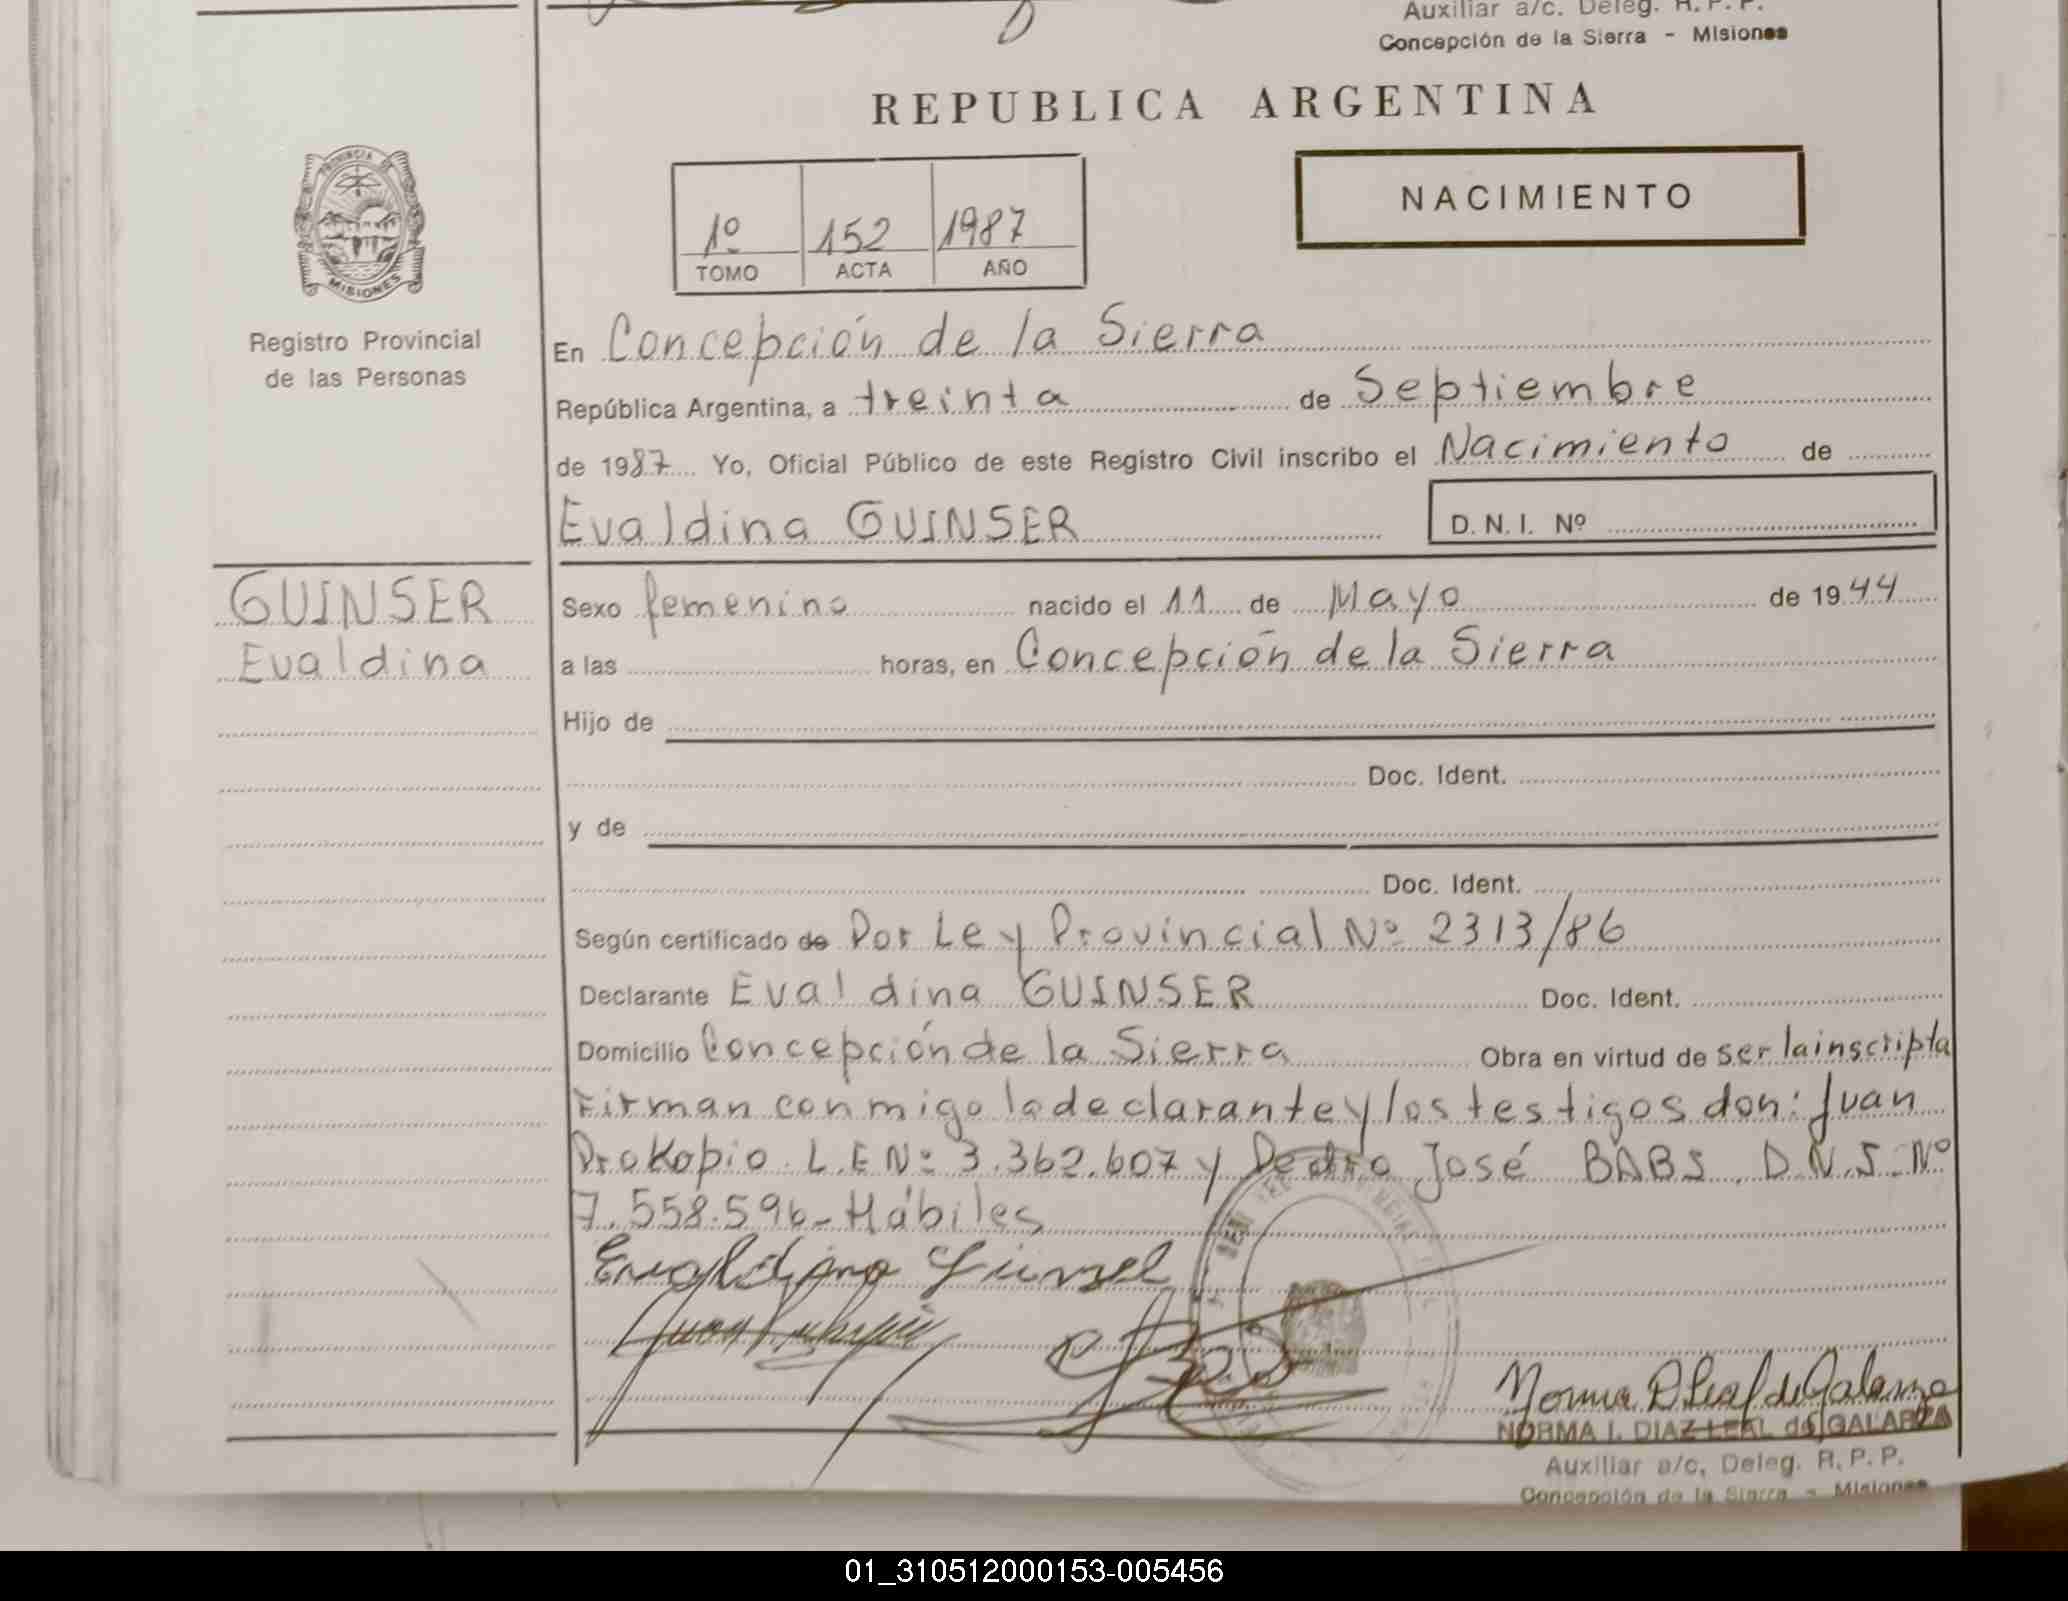 Auxiliar a/c. Deleg. R. P. P.
Concepción de la Sierra - Misiones
REPUBLICA ARGENTINA
PROVINCIA DE
MISIONES
Registro Provincial
de las Personas
1º 152 1987
TOMO ACTA AÑO
NACIMIENTO
En Concepción de la Sierra
República Argentina, a treinta de Septiembre
de 1987 Yo, Oficial Público de este Registro Civil inscribo el Nacimiento de
Evaldina GUINSER D. N. I. Nº
GUINSER
Evaldina
Sexo femenino nacido el 11 de Mayo de 1944
a las horas, en Concepción de la Sierra
Hijo de
Doc. Ident.
y de
Doc. Ident.
Según certificado de Por Ley Provincial Nº 2313/86
Declarante Evaldina GUINSER Doc. Ident.
Domicilio Concepción de la Sierra Obra en virtud de ser la inscripta
Firman conmigo la declarante y los testigos don: Juan
Prokopio L.E Nº 3.362.607 y Pedro José BABS D.N.I. Nº
7.558.596- Hábiles
Evaldina
Norma D Leal de Galarza
NORMA I. DIAZ LEAL de GALARZA
Auxiliar a/c, Deleg. R. P. P.
Concepción de la Sierra - Misiones
01_310512000153-005456